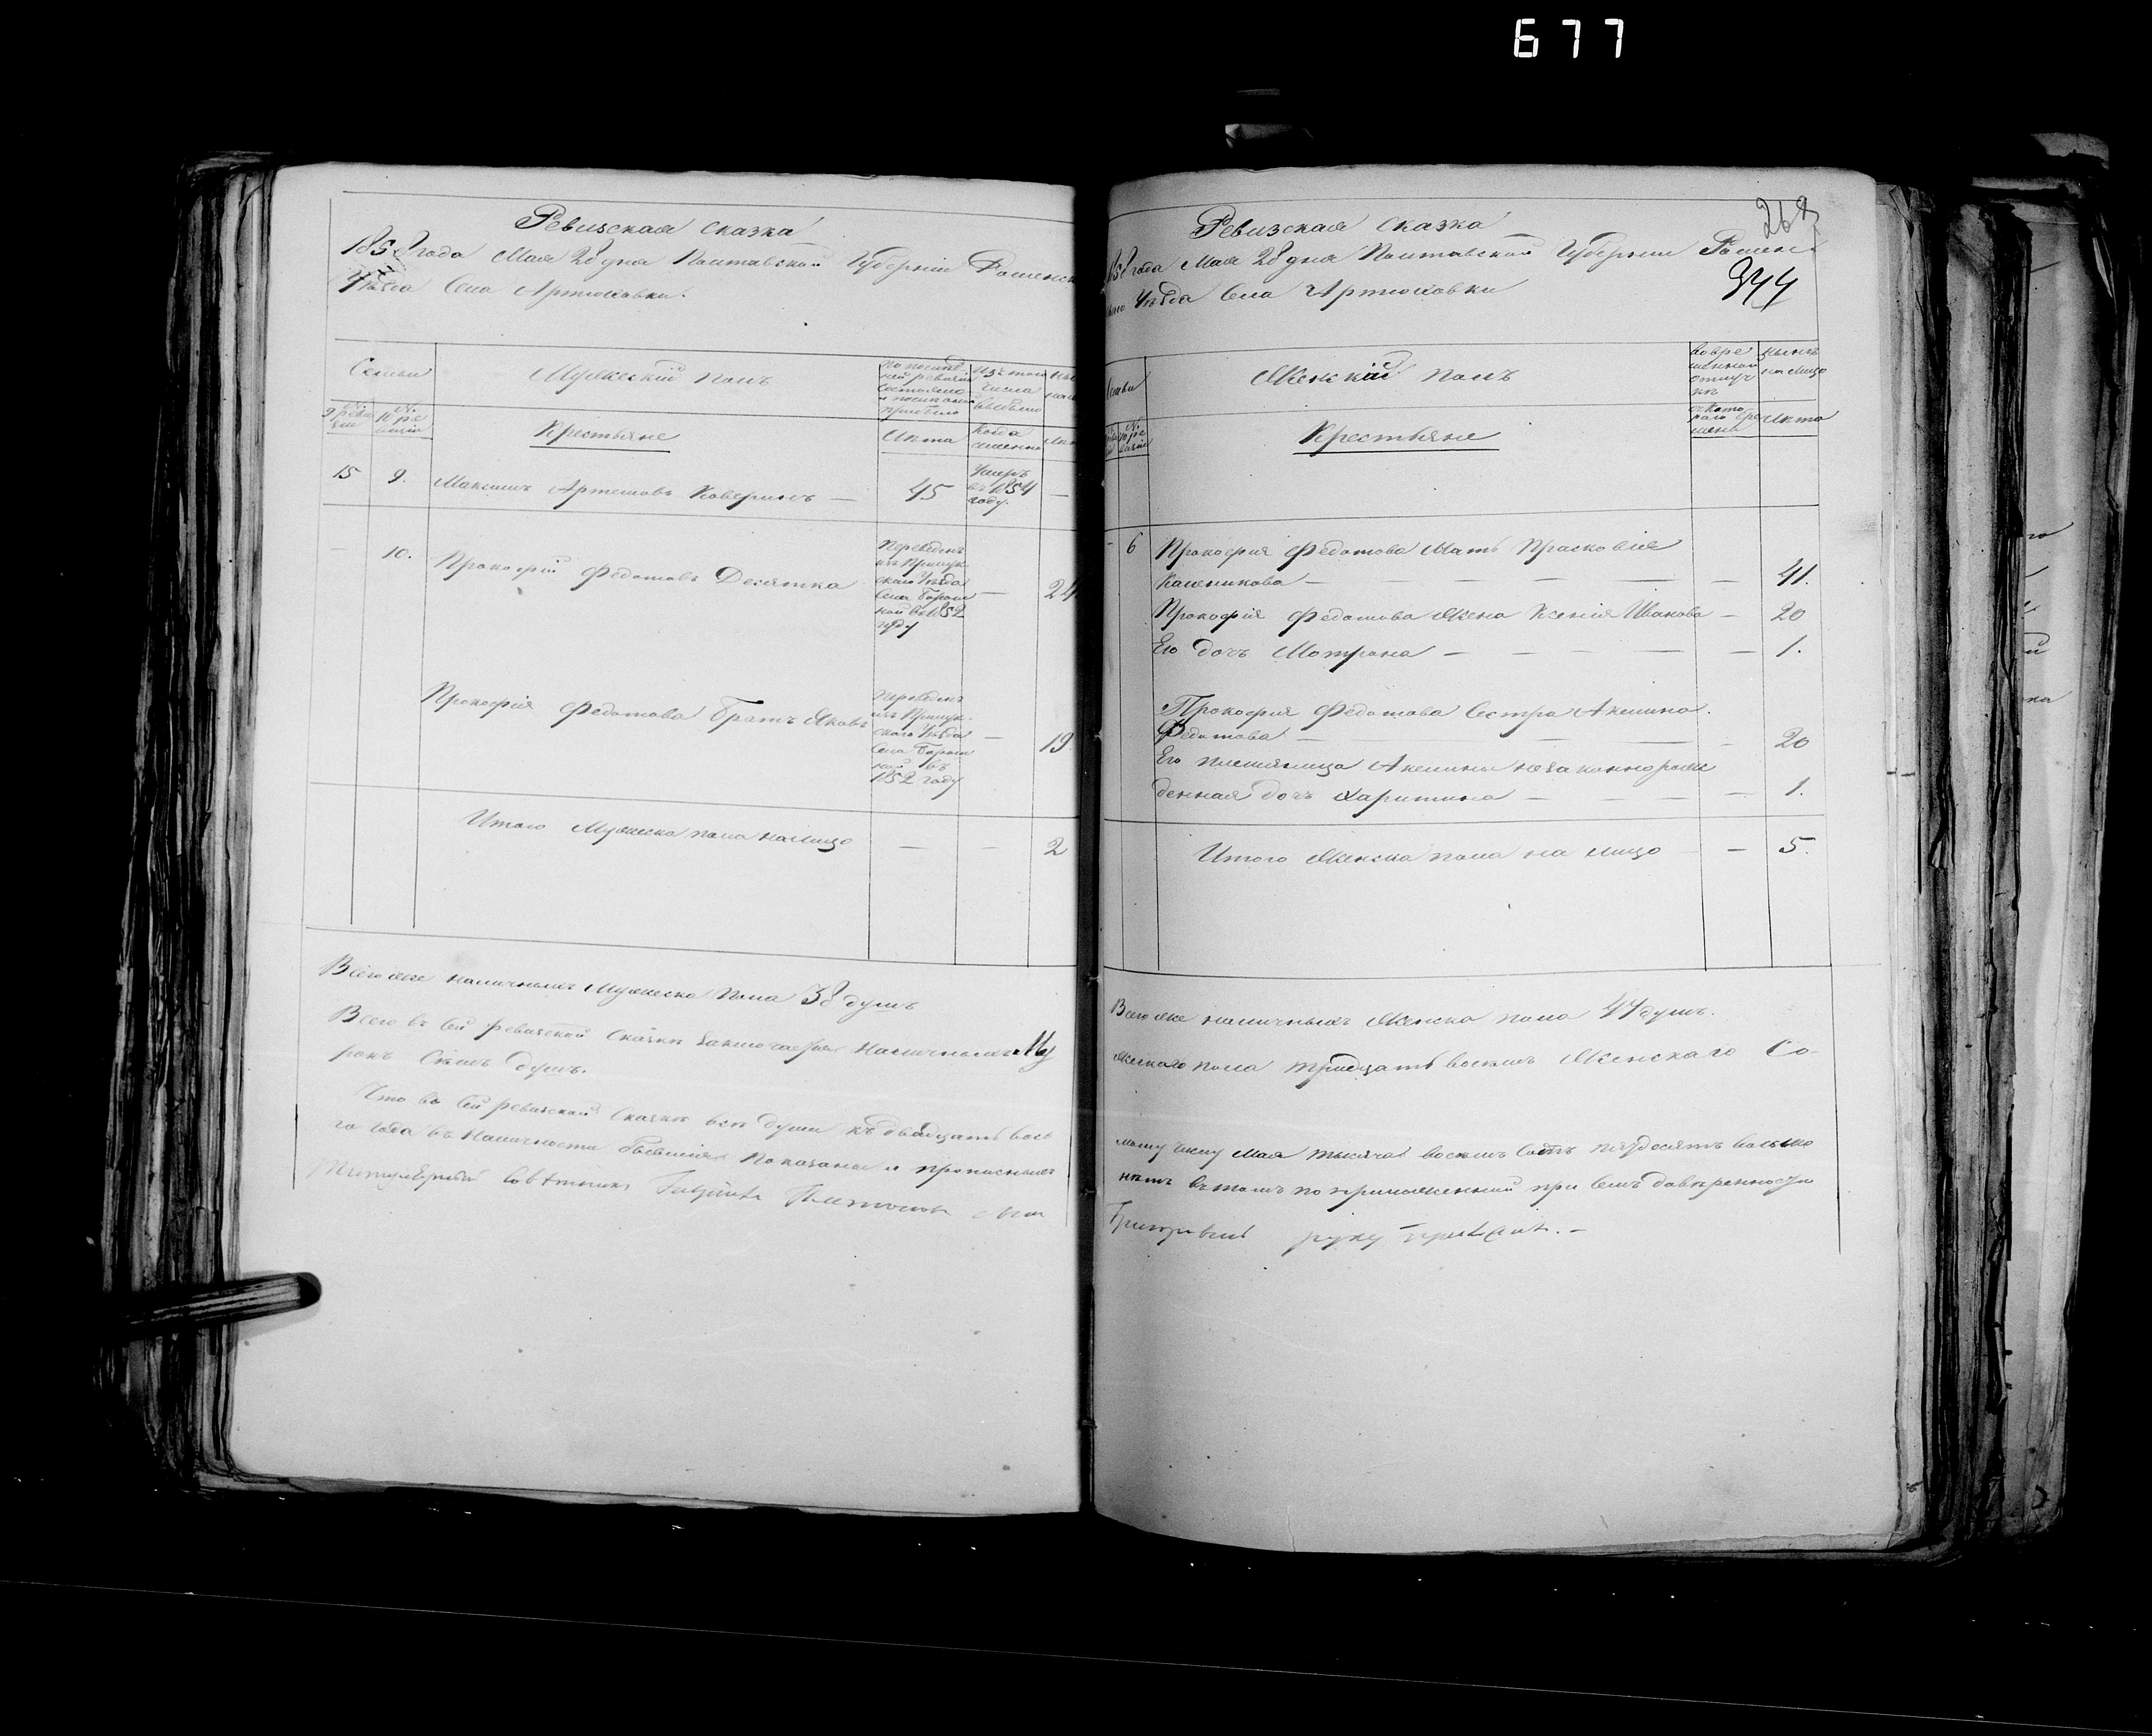 677
Ревизская сказка
1858 года Мая 28 дня Полтавской Губерніи Роменск
Уѣзда Села Артюховки.
Семьи
Мужескій полъ
По послѣд
ней ревизіи
состояло
и послѣ оной
прибыло
Изъ того
числа
выбыло
№
9 реви
зіи
№
10 ре
визіи
Крестьяне
Лѣта
Когда
именно
15 9. Максимъ Артемовъ Коверинъ — 45
Умеръ
въ 1854
году.
—
— 10. Прокофій Федотовъ Десятка — 24
Переведенъ
изъ Прилук
скаго Уѣзда
Села
въ 1852
году
Прокофія Федотова братъ Яковъ — 19
Переведенъ
изъ Прилук
скаго Уѣзда
Села
въ
1852 году
Итого Мужеска пола налицо — — 2
Всего же наличныхъ Мужеска пола 38 душъ
Всего въ сей ревизской сказки заключается наличныхъ Му
рокъ семь душъ.
Что въ сей ревизской сказки всѣ души къ двадцать вось
го года въ наличности бывшія показаны и прописныхъ
Титулярный Совѣтникъ сынъ
268
Ревизская сказка
1858 года Мая 28 дня Полтавской Губерніи Роменс
каго Уѣзда Села Артюховки
344
Семьи
Женскій полъ
Во вре
менной
отлуч
кѣ
Нынѣ
на лицо
№
10 ре
визіи
Крестьяне
съ кото
раго вре
мени
Лѣта
- 6 Прокофія Федотова Мать Прасковія
Каленикова — — — — — 41.
Прокофія Федотова Жена Ксенія Иванова — 20
Его дочъ Мотрона — — — — — 1.
Прокофія Федотова Сестра Акилина.
Федотова — — — - 20
Его племянница Акилины незаконнорож
денная дочъ Харитина — — — — 1.
Итого Женска пола на лицо — 5.
Всего же наличныхъ Женска пола 47 душъ.
жескаго пола тридцать восемь Женскаго Со-
мому числу Мая тысяча восемь сотъ пятдесятъ восьмо
нѣтъ въ томъ по приложенной при семъ довѣренности
руку приложилъ. —